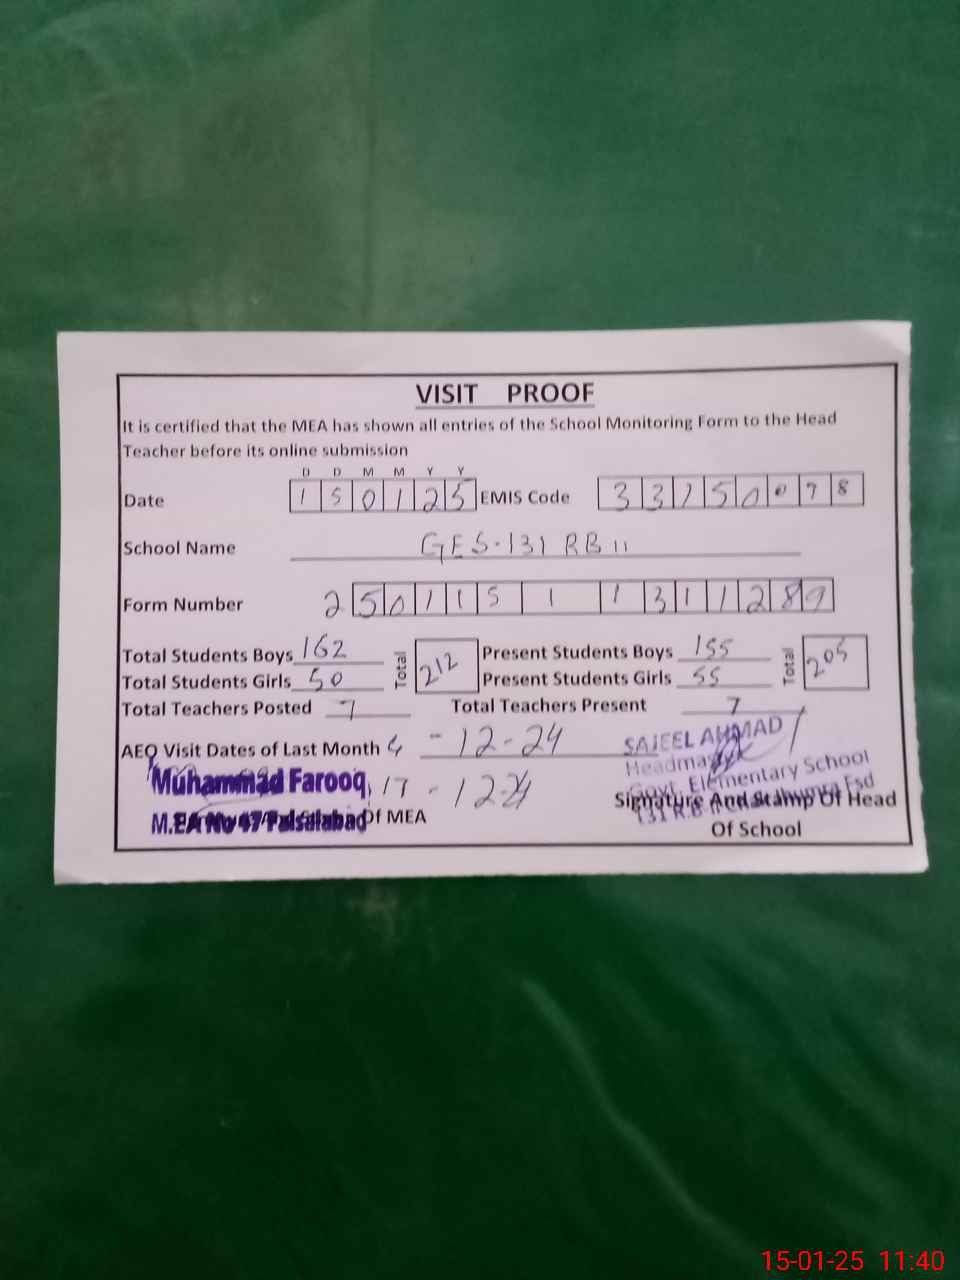 VISIT PROOF
It is certified that the MEA has shown all entries of the School Monitoring Form to the Head
Teacher before its online submission
D D M M Y Y
Date 1 5 0 1 2 5 EMIS Code 3 3 1 5 0 0 9 8
School Name GES-131 RB II
Form Number 2 5 0 1 1 5 1 1 3 1 1 2 8 9
Total Students Boys 162 Total 212 Present Students Boys 155 Total 205
Total Students Girls 50 Present Students Girls 55
Total Teachers Posted 7 Total Teachers Present 7
AEO Visit Dates of Last Month 4 - 12 - 24
SAJEEL AHMAD
Headmaster
Govt. Elementary School
Muhammad Farooq 17 - 12-24
Signature And Stamp Of Head
131 R.B Fsd
M.EA No 47 Faisalabad Of MEA
Of School
15-01-25 11:40